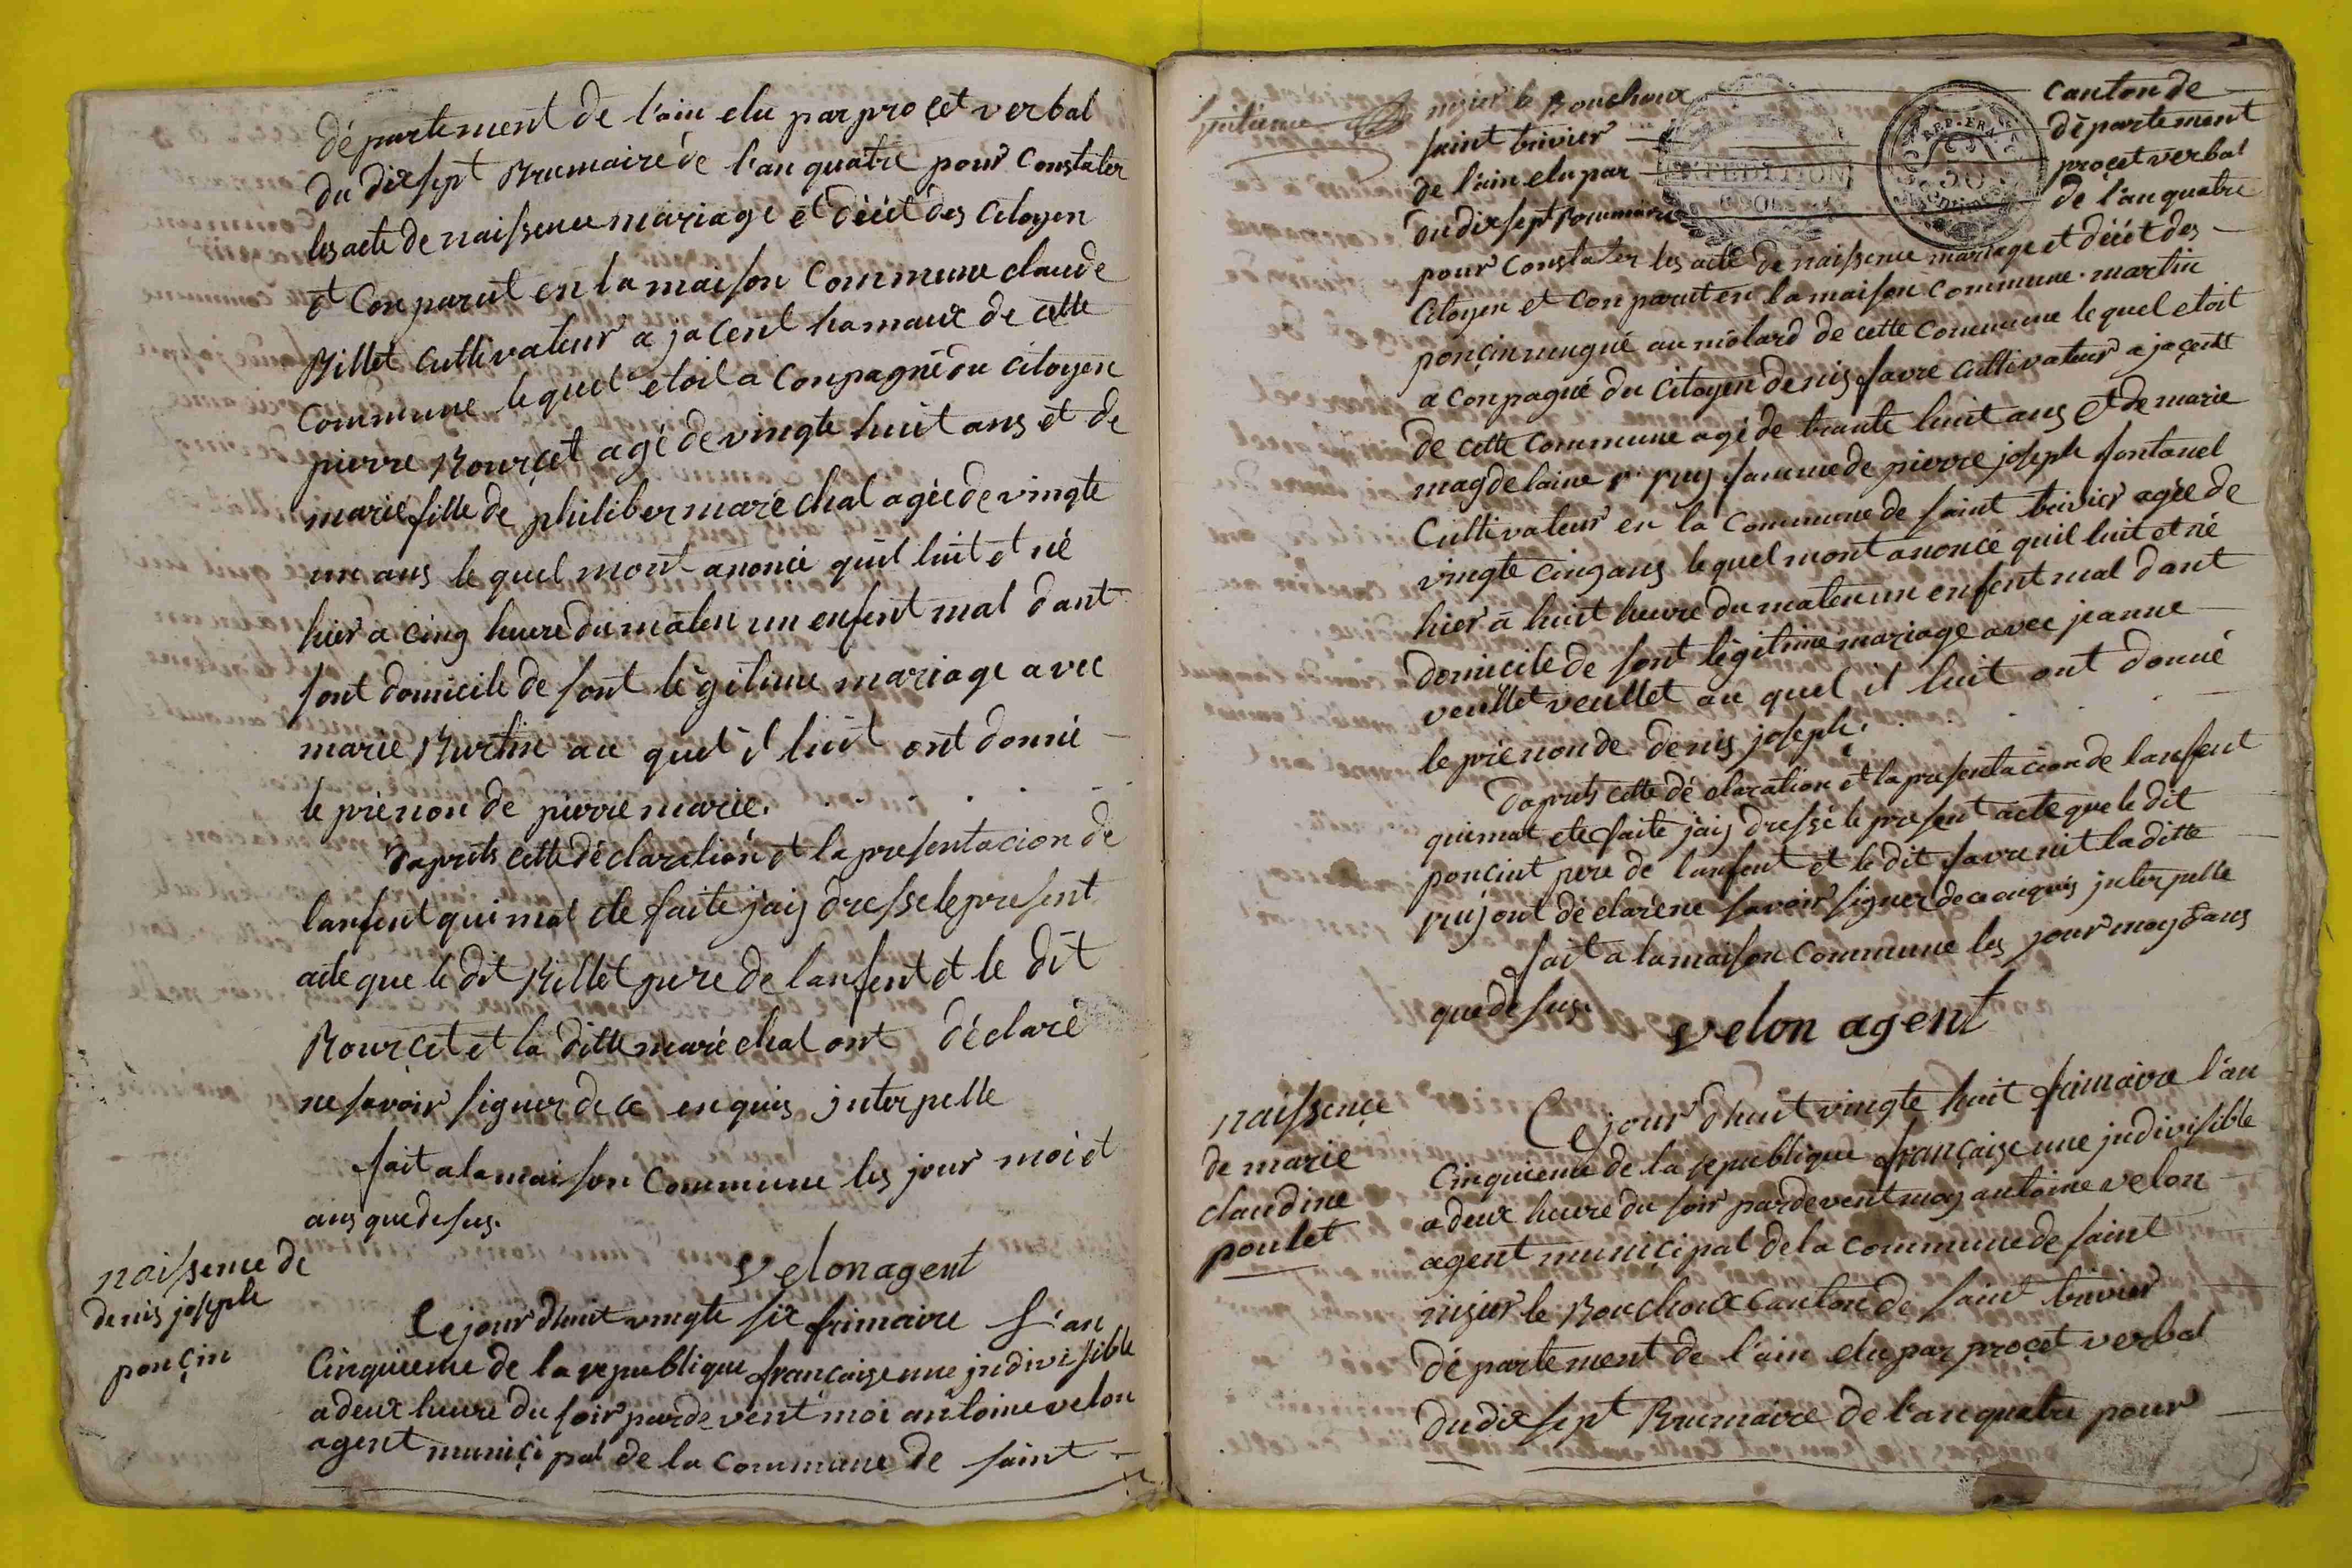 département de l'ain elu par proçet verbal
du dixsept Brumaire de l'an quatre pour Constater
les acte de naissence mariage et décét des Citoyen
et Conparut en la maison Commune claude
Billet Cultivateur a jacent hamaux de cette
Commune le quel etoit a Conpagné du Citoyen
pierre Bourçet agé de vingte huit ans et de
marie fille de philiber maréchal agée de vingte
un ans le quel mont anoncé quil luit et né
hier a cinq heure du maten un enfent mal dant
sont domicile de sont légitime mariage avec
marie Burtin au quel il luit ont donné
le prénon de pierre marie.
Daprèts cette déclaration et la presentacion de
lanfent qui mat ete faite jaij dresse le present
acte que le dit Billet pere de lanfent et le dit
Bourçet et la ditte maréchal ont déclaré
ne savoir signer de ce enquis jnterpelle
fait a la maison Commune les jour moi et
ans que desus.
velon agent
naissence de
denis joseph
ponçin
Cejourdhuit vingte six frimaire l'an
Cinquieme de la republique françaize une jndivisible
a deux heure du soir pardevent moi antoine velon
agent muniçipal de la Commune de saint
huitieme
nizier le Bouchoux
Canton de
saint trivier
département
de l'ain elu par
EXPEDITION
REP. FRA.
proçet verbal
du dixsept Brumaire
de l'an quatre
pour Constater les acte de naissence mariage et décét des
Citoyen et Conparut en la maison Commune martin
ponçin mugné au molard de cette Commune le quel etoit
a Conpagné du Citoyen denis favre Cultivateur a jaçent
de cette Commune agé de trante huit ans et de marie
magdelaine puij famme de pierre joseph fontanel
Cultivateur en la Commune de saint trivier agée de
vingte cinq ans le quel mont anoncé quil luit et né
hier a huit heure du maten un enfent mal dant
domicile de sont légitime mariage avec jeanne
veullet veullet au quel il luit ont donné
le prénon de denis joseph.
Daprèts cette déclaration et la presentacion de lanfent
qui mat ete faite jaij dressé le present acte que le dit
ponçint pere de lanfent et le dit favre nit la ditte
puij ont déclaré ne savoir signer de ce enquis jnterpelle
fait a la maison Commune les jour moy et ans
que desus.
velon agent
naissence
de marie
claudine
poulet
Cejourdhuit vingte huit frimaire l'an
Cinquieme de la republique françaize une jndivisible
a deux heure du soir pardevent moy antoine velon
agent muniçipal de la Commune de saint
nizier le Bouchoux Canton de saint trivier
département de l'ain elu par proçet verbal
du dix sept Brumaire de l'an quatre pour